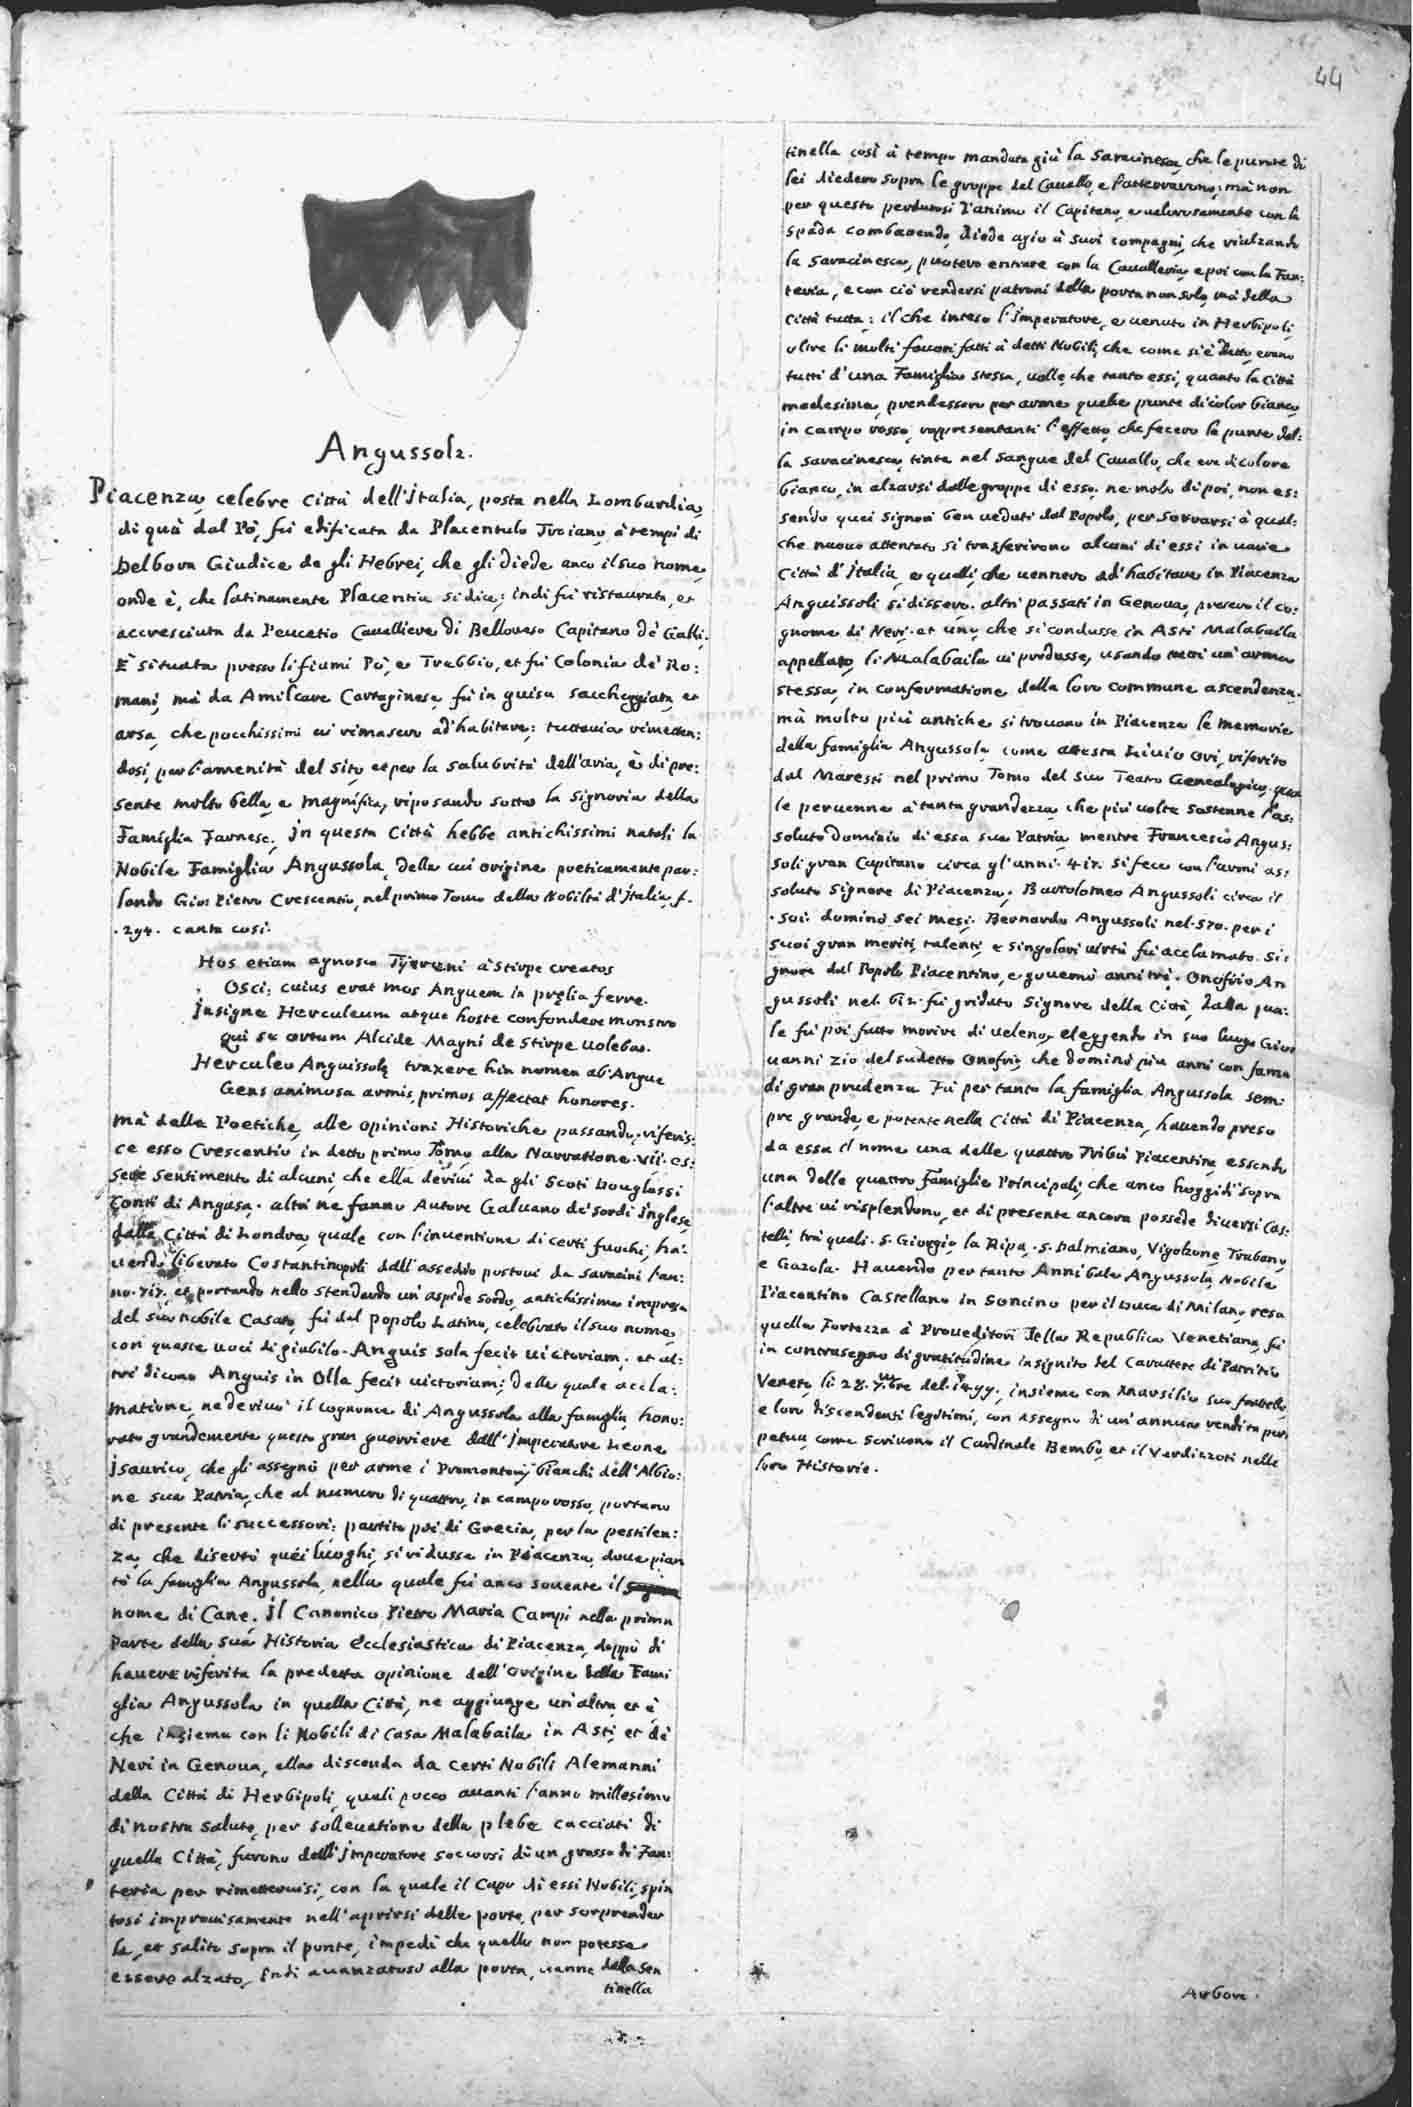 44
Angussola.
Piacenza, celebre Città dell'Italia, posta nella Lombardia,
di quà dal Pò, fù edificata da Placentulo Troiano, à tempi di
Delbora Giudice de gli Hebrei, che gli diede anco il suo nome,
onde è, che latinamente Placentia si dice; indi fù ristaurata, et
accresciuta da Peucetio Cavalliere di Belloveso Capitano de' Galli.
È situata presso li fiumi Pò, e Trebbio, et fù Colonia de' Ro:
mani, mà da Amilcare Cartaginese fù in guisa saccheggiata, et
arsa, che pochissimi vi rimasero ad' habitare; tuttavia rimetten:
dosi, per l'amenità del sito, et per la salubrità dell'aria, è di pre:
sente molto bella, e magnifica, riposando sotto la Signoria della
Famiglia Farnese. In questa Città hebbe antichissimi natali la
Nobile Famiglia Angussola, della cui origine poeticamente par:
lando Gio: Pietro Crescentio, nel primo Tomo della Nobiltà d'Italia, f.
.294. canta così.
Hos etiam agnosco Tyrreni à Stirpe creatos
Osci: cuius erat mos Anguem in prælia ferre.
Insigne Herculeum atque hoste confondere monstro
Qui se ortum Alcide Magni de Stirpe volebat.
Herculeo Anguissolæ traxere hin nomen ab' Angue
Gens animosa armis, primos affectat honores.
Mà dalle Poetiche, alle opinioni Historiche passando, riferis:
ce esso Crescentio in detto primo Tomo alla Narratione .VII. es:
sere sentimento di alcuni, che ella derivi da gli Scoti Douglassi
Conti di Angusa. altri ne fanno Autore Galvano de' Sordi Inglese,
dalla Città di Londra, quale con l'inventione di certi fuochi, ha:
vendo liberato Costantinopoli dall'assedio postovi da Saracini l'an:
no .717. et portando nello stendardo un'aspide sordo, antichissima impresa
del suo nobile Casato, fù dal popolo Latino, celebrato il suo nome,
con queste voci di giubilo. Anguis sola fecit victoriam. et al:
tri dicono Anguis in Olla fecit victoriam; dalla quale accla:
matione, ne derivò il cognome di Angussola alla famiglia, hono:
rato grandemente questo gran guerriere dall'Imperatore Leone
Isaurico, che gli assegnò per arme i Promontorij bianchi dell'Albio:
ne sua Patria, che al numero di quattro, in campo rosso, portano
di presente li successori; partito poi di Grecia, per la pestilen:
za, che disertò quei luoghi, si ridusse in Piacenza, dove pian
tò la famiglia Angussola, nella quale fù anco sovente il
nome di Cane. Il Canonico Pietro Maria Campi nella prima
Parte della sua Historia Ecclesiastica di Piacenza, doppò di
havere riferita la predetta opinione dell'origine della Fami
glia Angussola in quella Città, ne aggiunge un'altra, et è
che insieme con li Nobili di Casa Malabaila in Asti, et de'
Neri in Genova, ella discenda da certi Nobili Alemanni
della Città di Herbipoli, quali pocco avanti l'anno millesimo
di nostra salute, per sollevatione della plebe cacciati di
quella Città, furono dall'Imperatore soccorsi di un grosso di Fan:
teria per rimettervisi, con la quale il Capo di essi Nobili, spin
tosi improvisamente nell'aprirsi delle porte, per sorprender
la, et salito sopra il ponte, impedì che quello non potesse
essere alzato, indi avanzatosi alla porta, venne dalla sen
tinella
tinella così à tempo mandata giù la Saracinesca, che le punte di
lei diedero sopra le groppe del Cavallo, e l'atterrarono; mà non
per questo perdutosi d'animo il Capitano, e valorosamente con la
spada combattendo, diede agio à suoi compagni, che rialzando
la Saracinesca, potero entrare con la Cavalleria, e poi con la Fan:
teria, e con ciò rendersi patroni della porta non solo, mà della
Città tutta; il che inteso l'Imperatore, e venuto in Herbipoli,
oltre li molti favori fatti à detti Nobili, che come si è detto, erano
tutti d'una Famiglia stessa, volle che tanto essi, quanto la Città
medesima, prendessero per arme quelle punte di color bianco,
in campo rosso, rappresentanti l'effetto, che fecero le punte del:
la Saracinesca, tinte nel sangue del Cavallo, che era di colore
bianco, in alzarsi dalle groppe di esso. ne molto di poi, non es:
sendo quei Signori ben veduti dal Popolo, per sottrarsi à qual:
che nuovo attentato si trasferirono alcuni di essi in varie
Città d'Italia, e quelli, che vennero ad' habitare in Piacenza
Anguissoli si dissero. altri passati in Genova, presero il co:
gnome di Neri. et uno, che si condusse in Asti Malabaila
appellato, li Malabaila vi produsse, usando tutti un'arma
stessa, in confermatione della loro commune ascendenza.
mà molto più antiche si trovano in Piacenza le memorie
della famiglia Angussola, come attesta Livio Ovi, riferito
dal Maresti nel primo Tomo del suo Teatro Genealogico, qua
le pervenne à tanta grandezza, che più volte sostenne l'as:
soluto dominio di essa sua Patria, mentre Francesco Angus:
soli gran Capitano circa gl'anni .417. si fece con l'armi as:
soluto Signore di Piacenza. Bartolomeo Angussoli circa il
.501. dominò sei mesi. Bernardo Angussoli nel .570. per i
suoi gran meriti, talenti, e singolari virtù fù acclamato Si:
gnore dal Popolo Piacentino, e governò anni trè. Onofrio An
gussoli nel .612. fù gridato Signore della Città, dalla qua:
le fù poi fatto morire di veleno, eleggendo in suo luogo Giov
vanni zio del sudetto Onofrio, che dominò più anni con fama
di gran prudenza. Fù per tanto la famiglia Angussola sem:
pre grande, e potente nella Città di Piacenza, havendo preso
da essa il nome una delle quattro Tribù Piacentine, essendo
una delle quattro Famiglie Principali, che anco hoggidì sopra
l'altre vi risplendono, et di presente ancora possede diversi Cas:
telli, trà quali .S. Giorgio, la Ripa, .S. Dalmiano, Vigolzone, Trabano,
e Gazola. Havendo per tanto Annibale Angussola, Nobile
Piacentino Castellano in Soncino per il Duca di Milano, resa
quella Fortezza à Proveditori della Republica Venetiana, fù
in contrasegno di gratitudine insignito del Carattere di Patritio
Veneto, li 28. 7.bre del .1499., insieme con Marsilio suo fratello,
e loro discendenti legitimi, con assegno di un'annua rendita per
petua, come scrivono il Cardinale Bembo, et il Verdizzoti nelle
loro Historie.
Arbore.